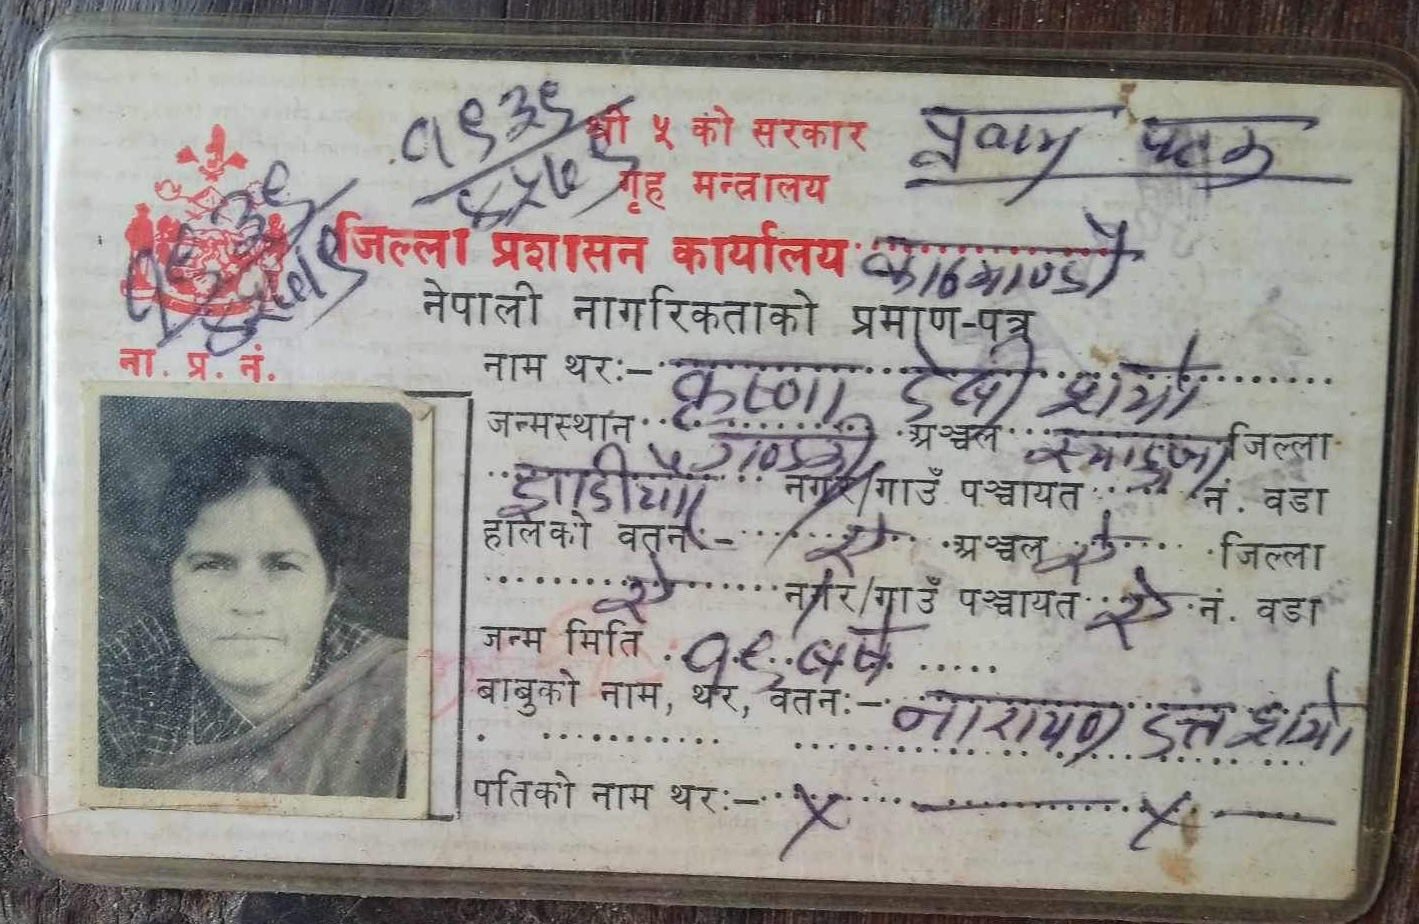 श्री ५ को सरकार
गृह मन्त्रालय
जिल्ला प्रशासन कार्यालय काठमाण्डौ
नेपाली नागरिकताको प्रमाण-पत्र
ना. प्र. नं.
नाम थरः- कृष्णा देवी शर्मा
जन्मस्थान गण्डकी अञ्चल स्याङ्जा जिल्ला
नगर/गाउँ पञ्चायत नं. वडा
हालको वतन - ऐ अञ्चल ऐ जिल्ला
ऐ नगर/गाउँ पञ्चायत ऐ नं. वडा
जन्म मिति १९ वर्ष
बाबुको नाम, थर, वतनः- नारायण दत्त शर्मा
पतिको नाम थरः- × — × —